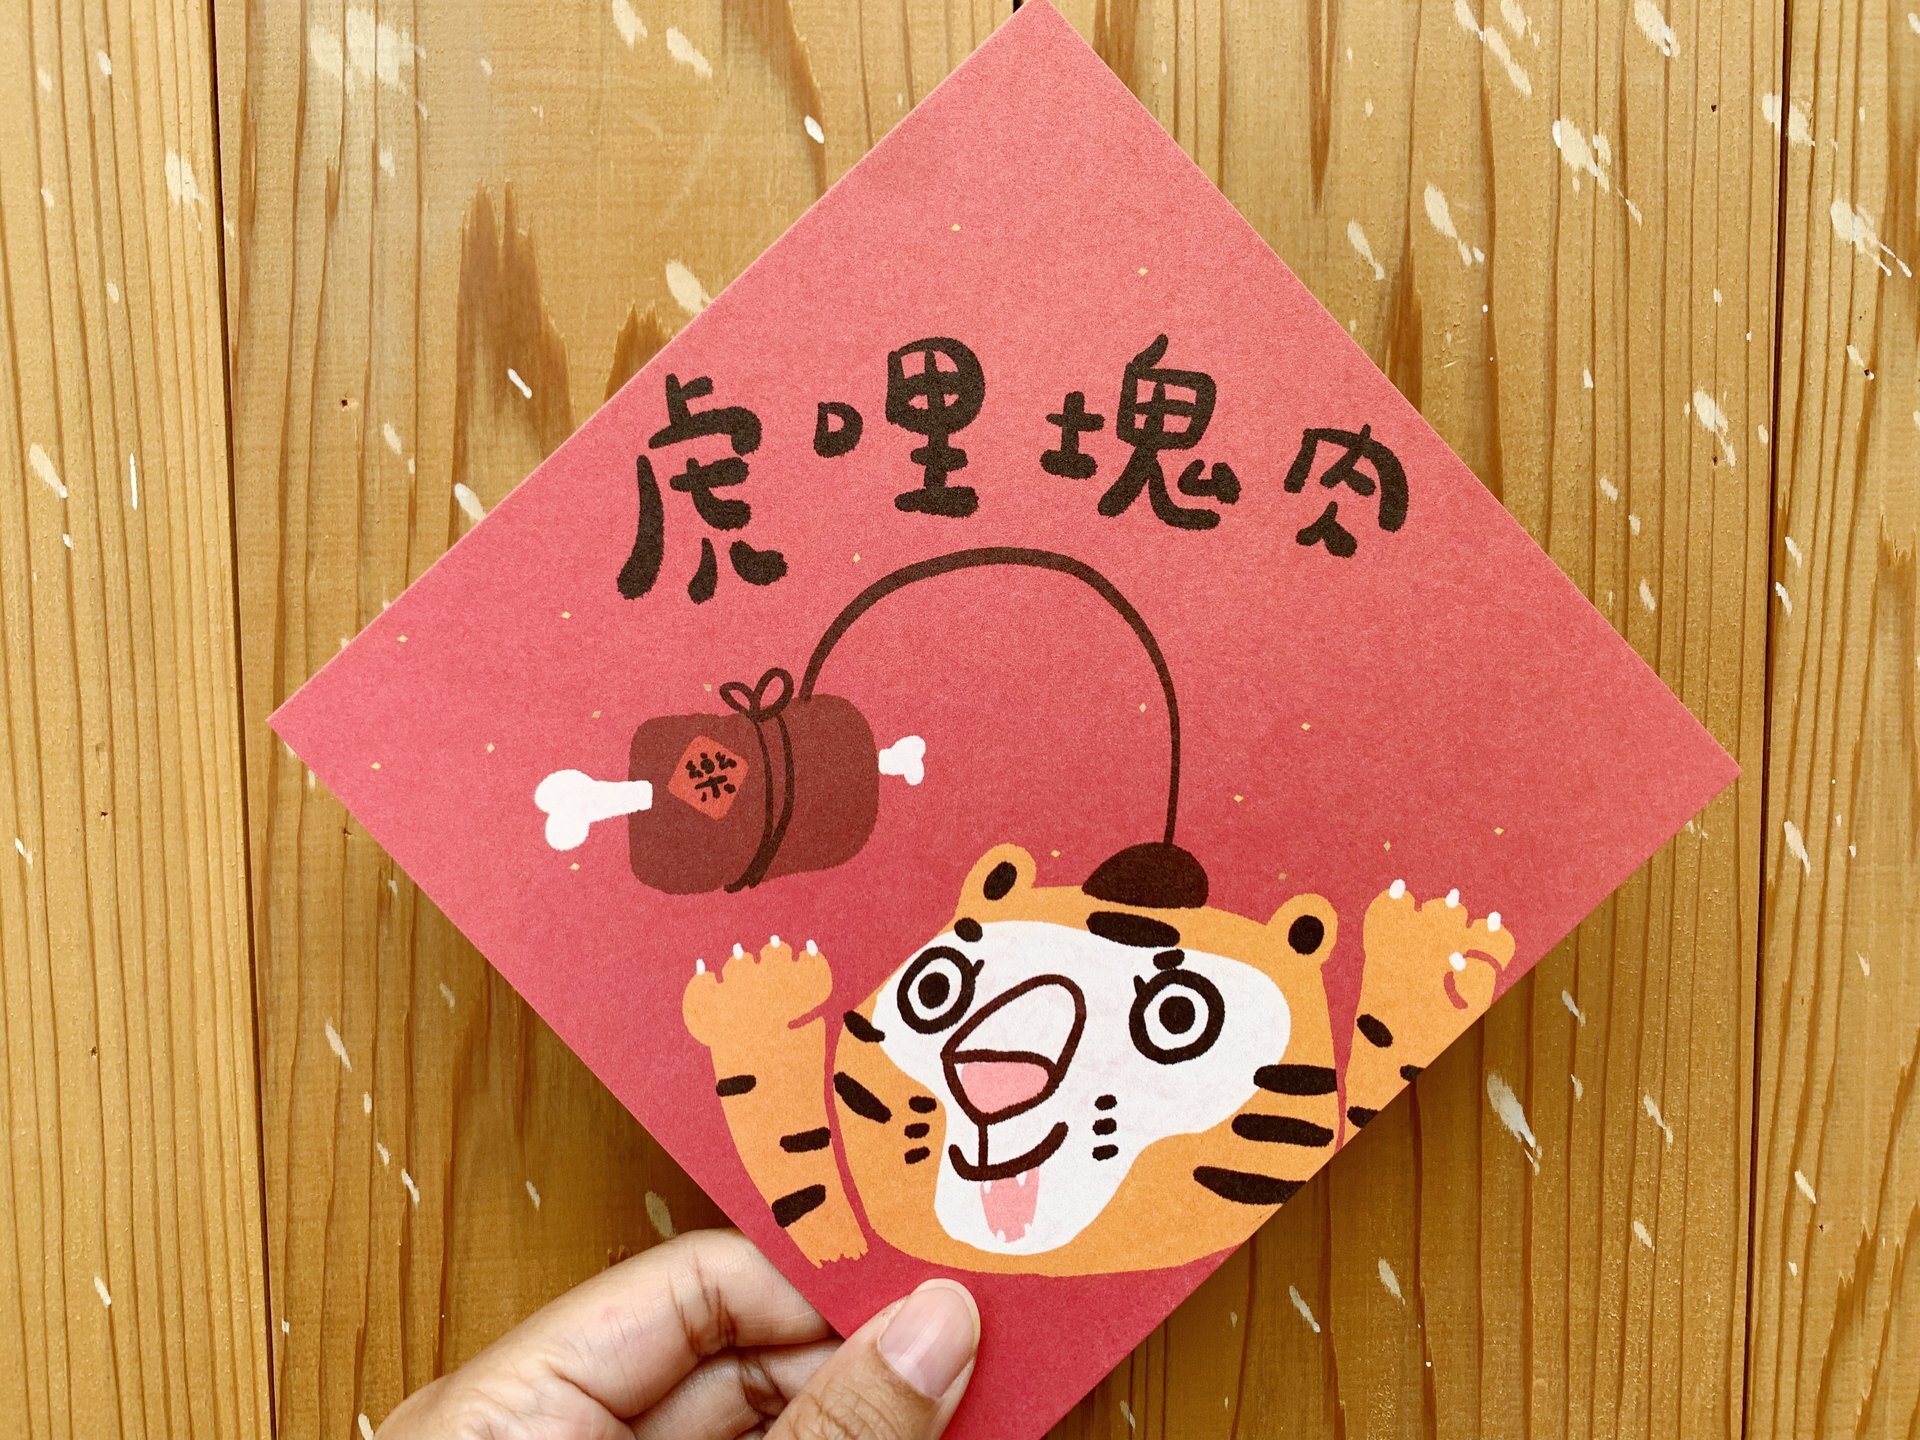 虎哩塊肉
樂